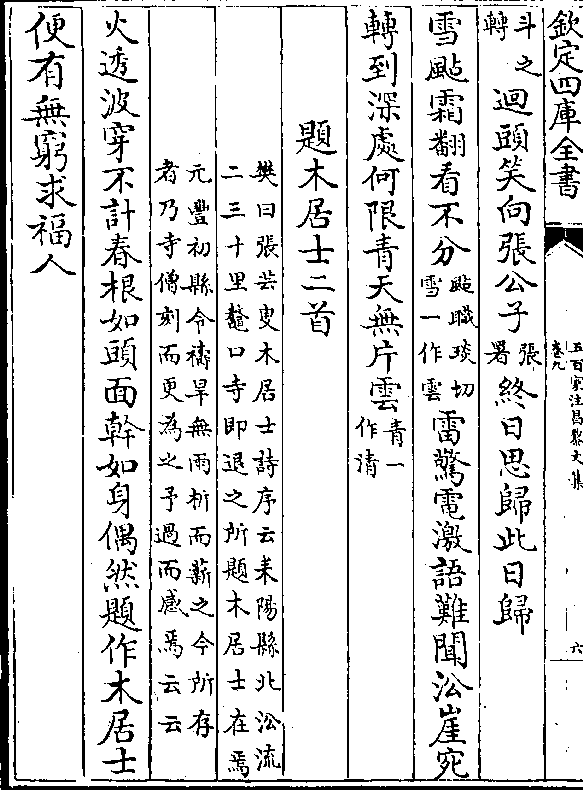 欽定四庫全書
五百家注昌黎文集
卷九
六
斗之
轉
迴頭笑向張公子
張
署
終日思歸此日歸
雪颭霜翻看不分
颭職琰切
雪一作雲
雷驚電激語難聞㳂崖宛
轉到深處何限青天無片雲
青一
作清
題木居士二首
樊曰張芸叟木居士詩序云耒陽縣北㳂流
二三十里鼇口寺即退之所題木居士在焉
元豐初縣令禱旱無雨析而薪之今所存
者乃寺僧刻而更為之予過而感焉云云
火透波穿不計春根如頭面幹如身偶然題作木居士
便有無窮求福人